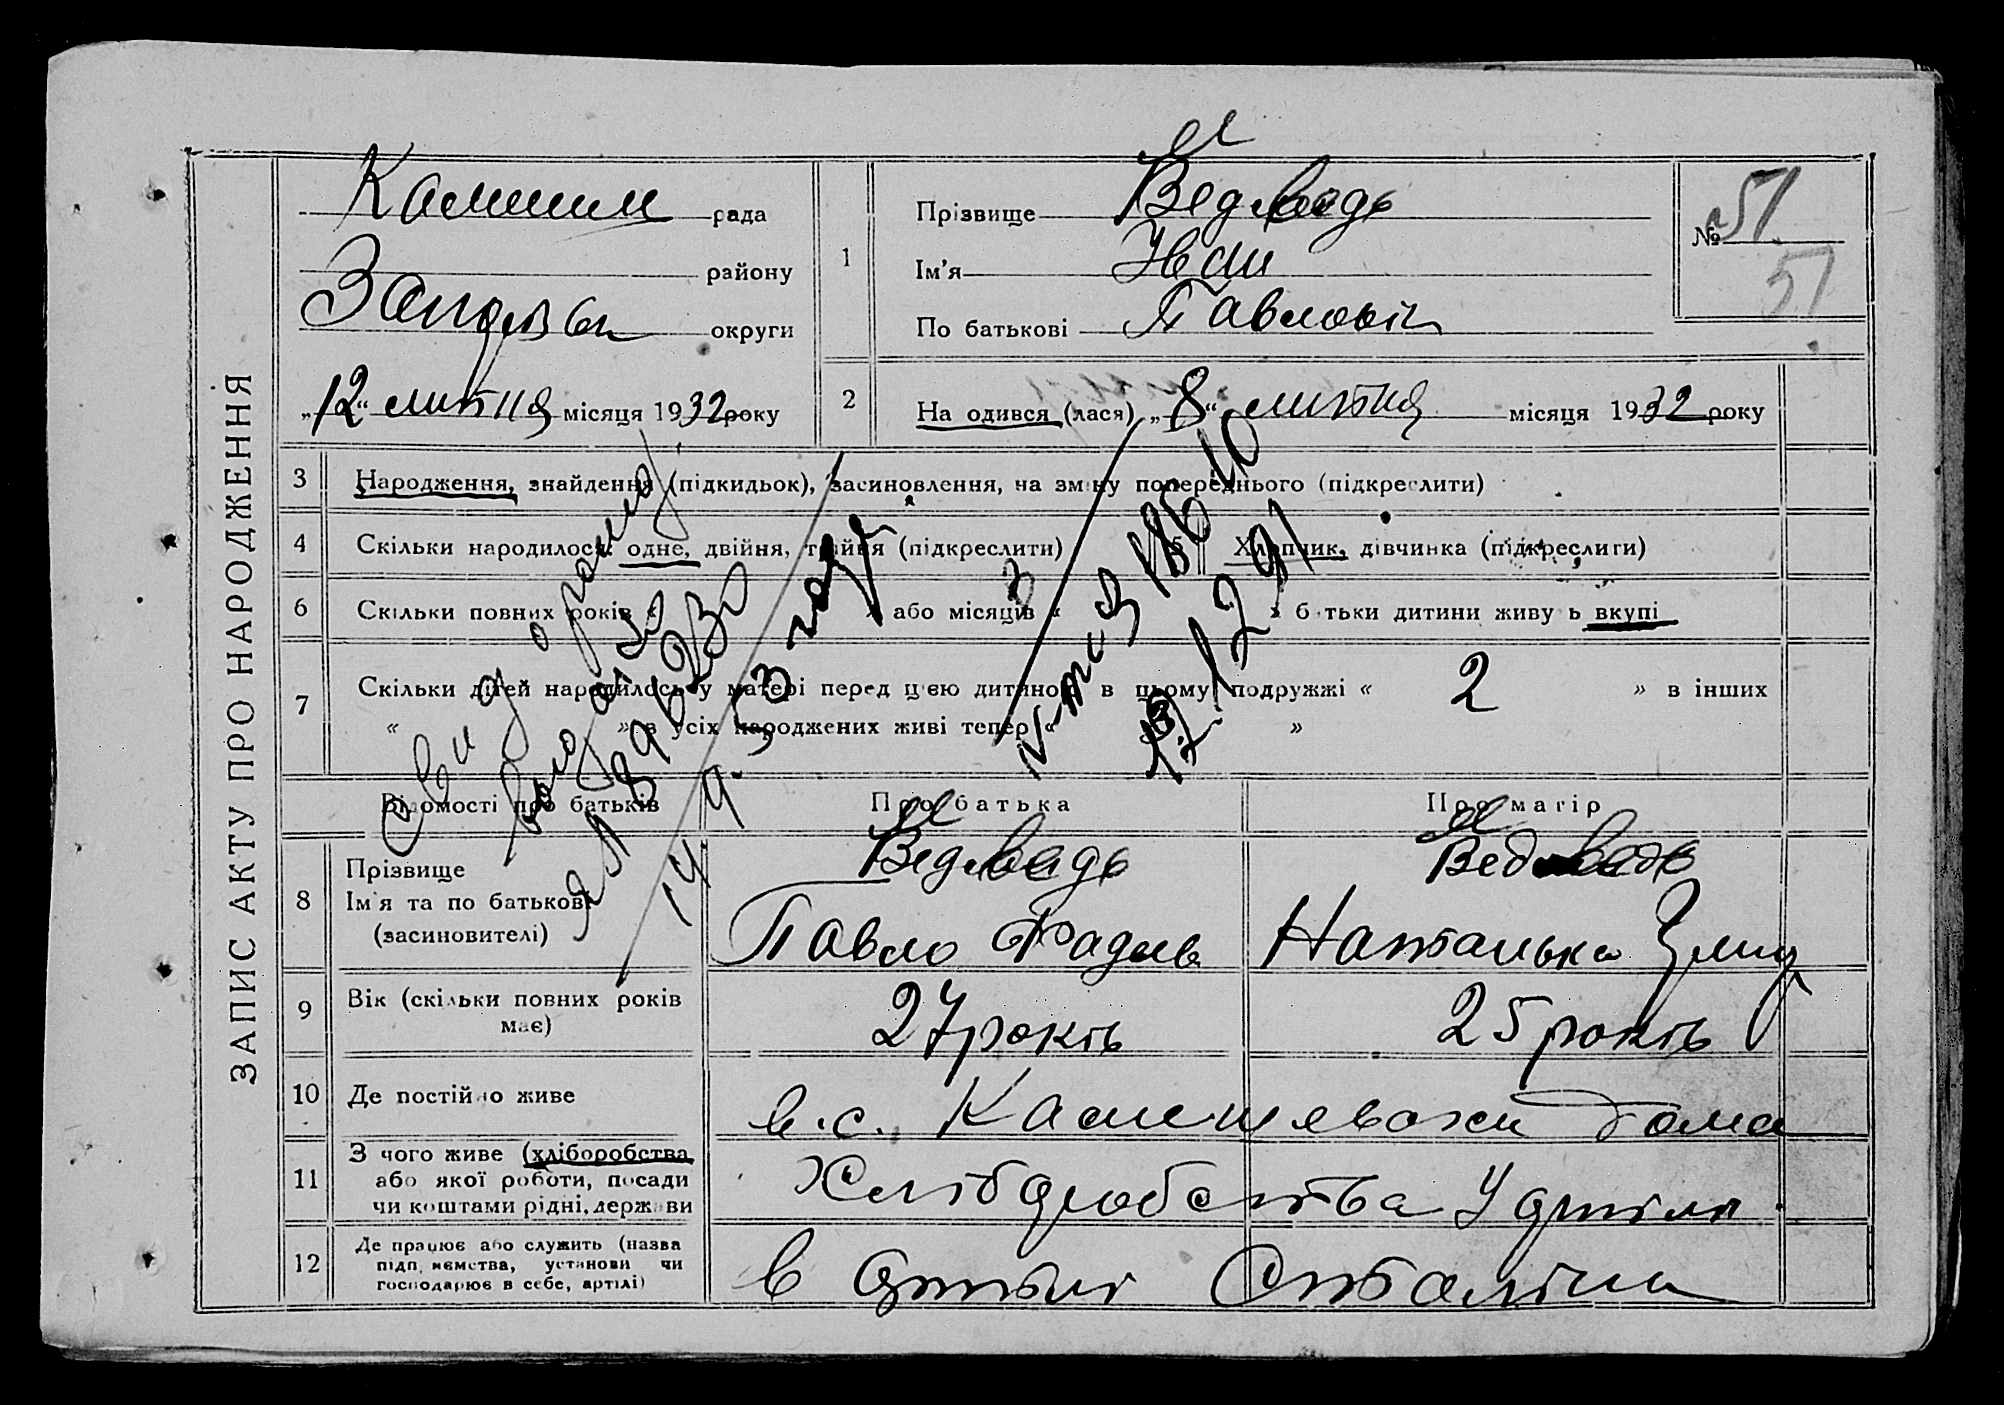 ЗАПИС АКТУ ПРО НАРОДЖЕННЯ
рада
району
округи
„12“ лютня місяця 1932 року
1
Прізвище Ведмедь
Ім'я Іван
По батькові Павловіч
№ 51
51
2
На одився (лася) „8“ лютня місяця 1932 року
3
Народження, знайдення (підкидьок), засиновлення, на зміну попереднього (підкреслити)
4
Скільки народилося: одне, двійня, трійня (підкреслити)
5
Хлопчик, дівчинка (підкреслити)
6
Скільки повних років « » або місяців « 3 » батьки дитини живуть вкупі
7
Скільки дітей народилось у матері перед цією дитиною в цьому подружжі « 2 » в інших
« » в усіх народжених живі тепер « »
14. 9. 53
Відомості про батьків
Про батька
Про матір
8
Прізвище
Ім'я та по батькові
(засиновителі)
Ведмедь
Павло
Ведмедь
Наталька
9
Вік (скільки повних років має)
27 років
25 років
10
Де постійно живе
в.с.
11
З чого живе (хліборобства
або якої роботи, посади
чи коштами рідні, держави
Хліборобства У артілі
12
Де працює або служить (назва
підприємства, установи чи
господарює в себе, артілі)
в артілі Сталіна